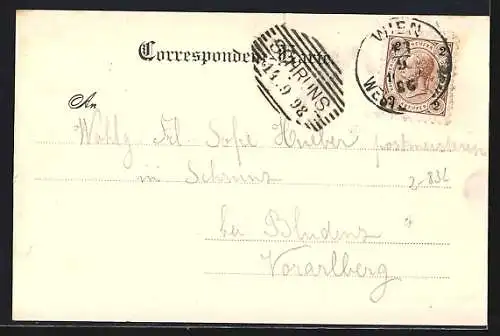 Correspondenz-Karte
SCHRUNS
14.9.98
WIEN
An
Wohlg Frl. Sofie Hueber postmeisterin
in Schruns
2-832
bei Bludenz
Vorarlberg